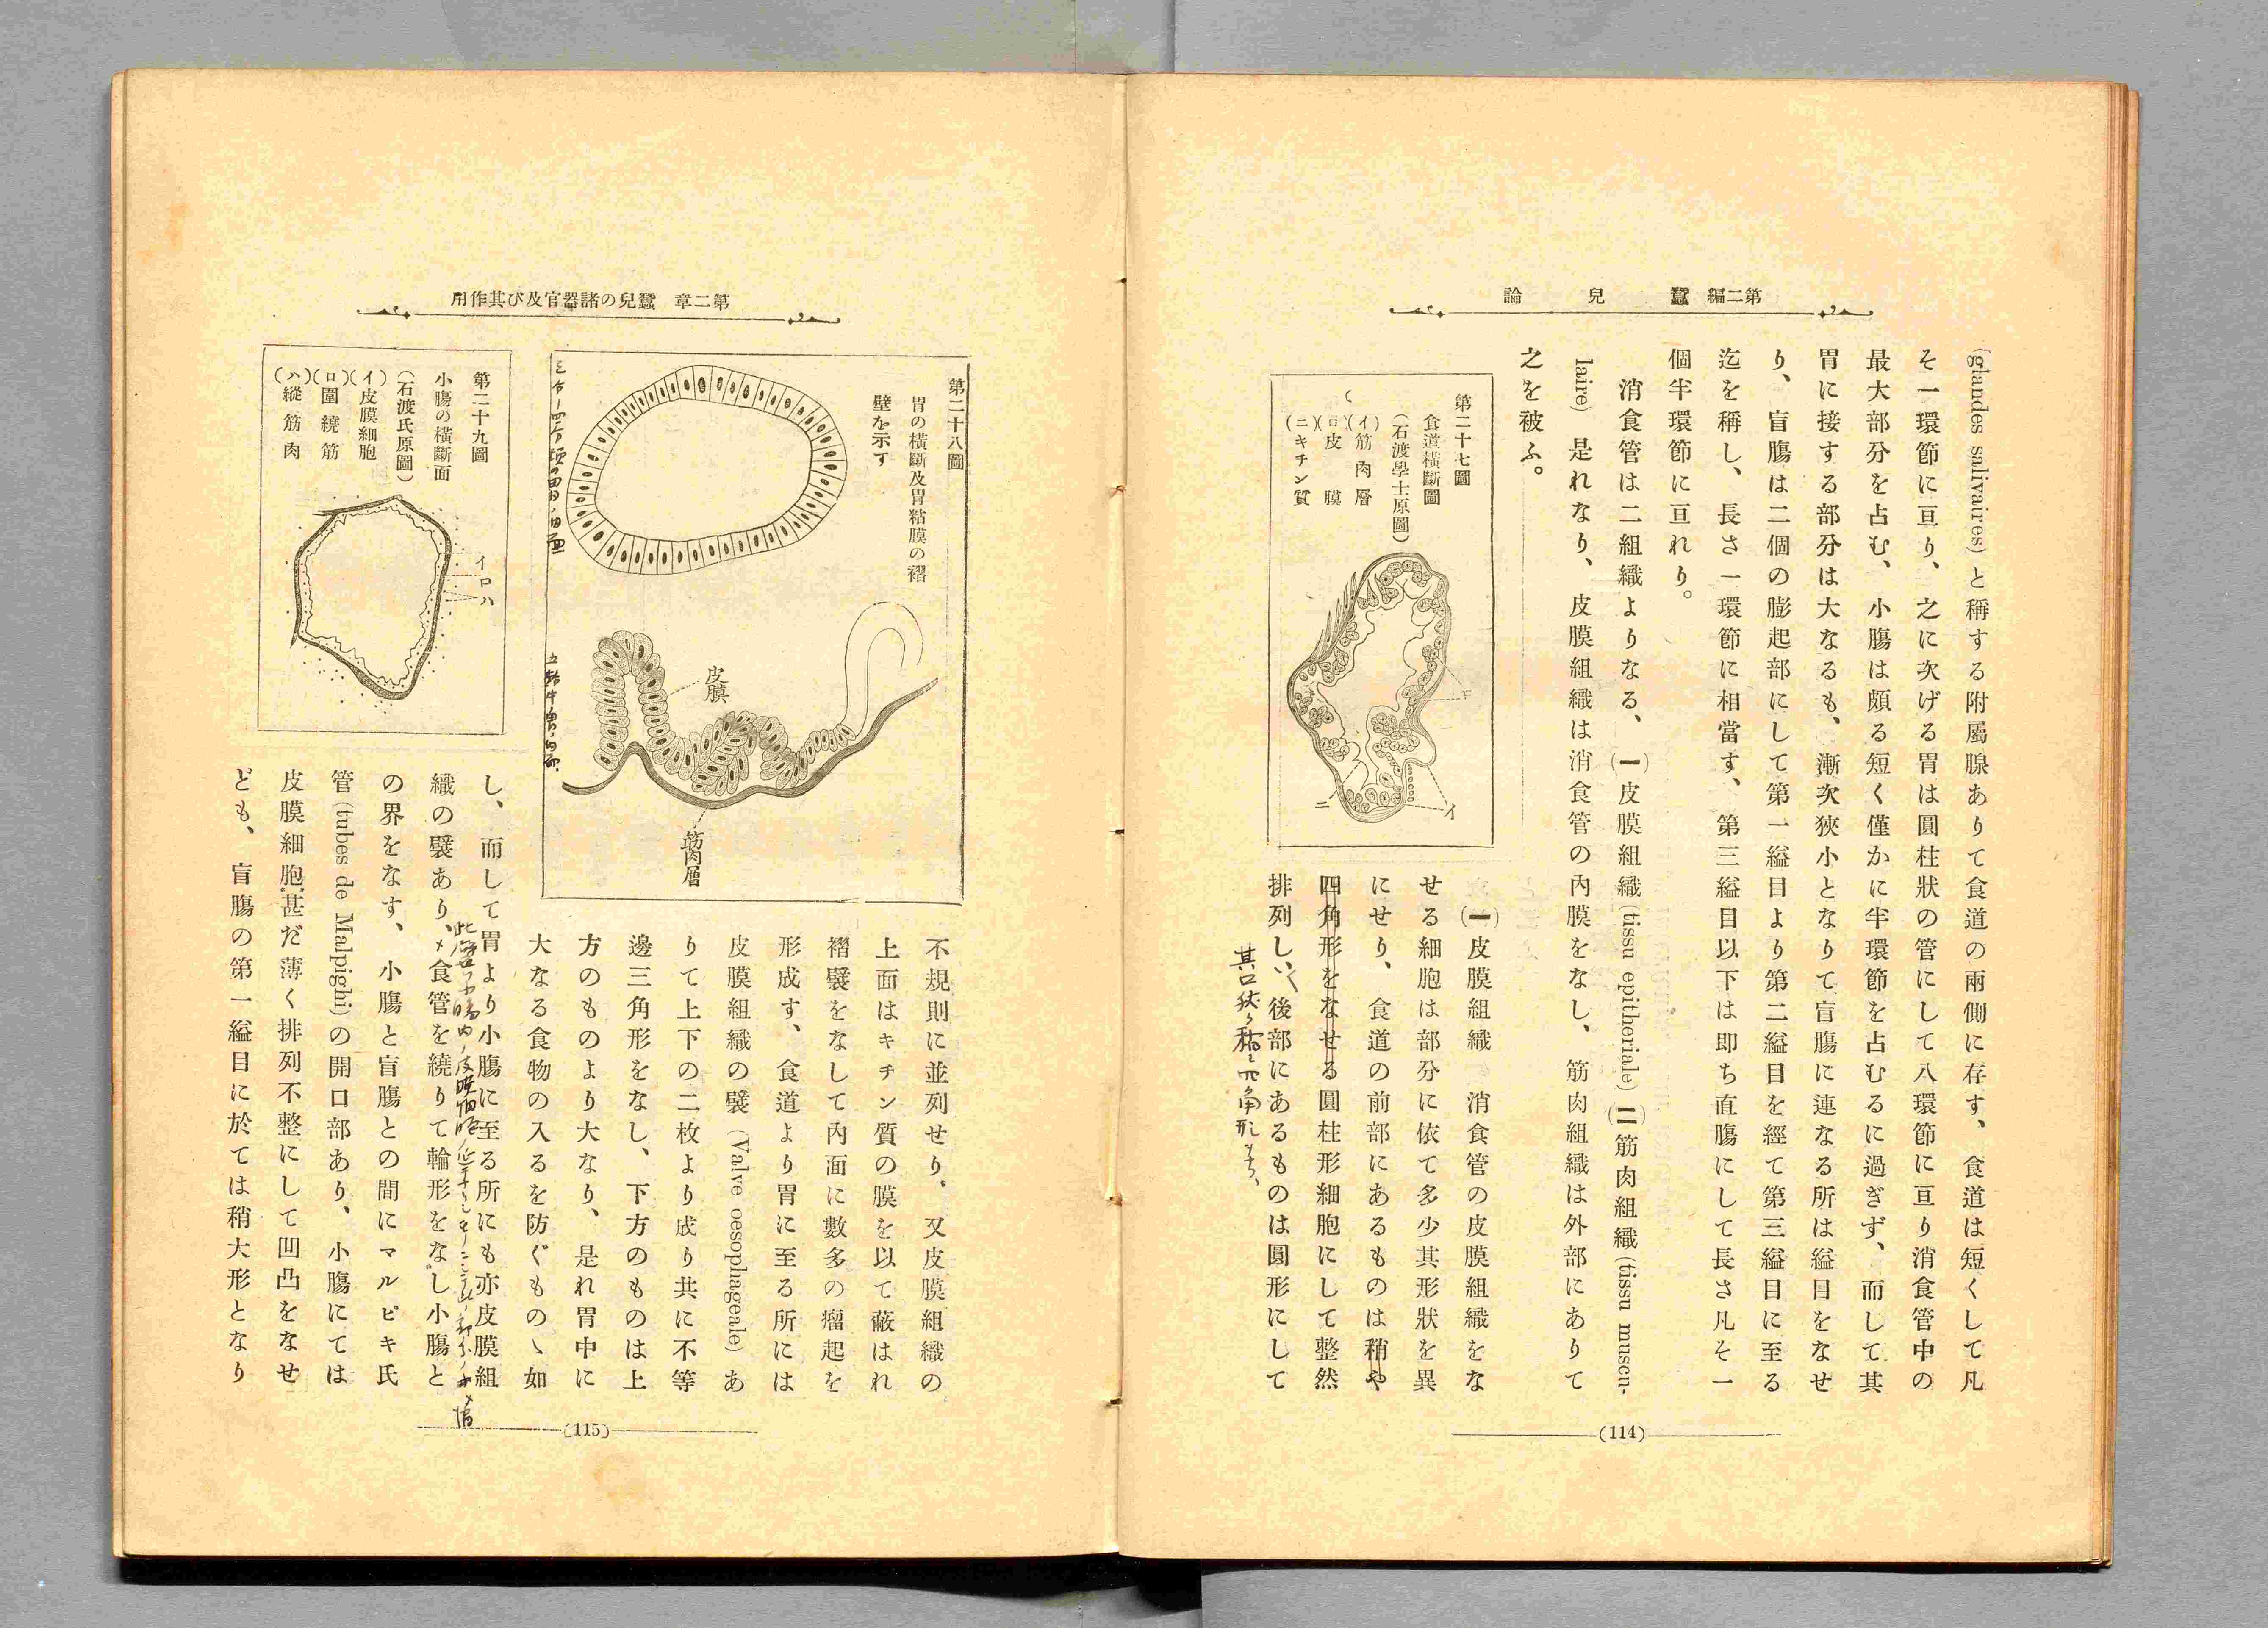 第二編　蠶兒論
(glandes salivaires)と稱する附屬腺ありて食道の兩側に存す、食道は短くして凡
そ一環節に亘り、之に次げる胃は圓柱狀の管にして八環節に亘り消食管中の
最大部分を占む、小腸は頗る短く僅かに半環節を占むるに過ぎず、而して其
胃に接する部分は大なるも、漸次狹小となりて盲腸に連なる所は縊目をなせ
り、盲腸は二個の膨起部にして第一縊目より第二縊目を經て第三縊目に至る
迄を稱し、長さ一環節に相當す、第三縊目以下は即ち直腸にして長さ凡そ一
個半環節に亘れり。
消食管は二組織よりなる、(一)皮膜組織(tissu epitheriale)(二)筋肉組織(tissu muscu-
laire)是れなり、皮膜組織は消食管の內膜をなし、筋肉組織は外部にありて
之を被ふ。
第二十七圖
食道橫斷圖
(石渡學士原圖)
(イ)筋肉層
(ロ)皮膜
(ニ)キチン質
ニ
イ
(一)皮膜組織　消食管の皮膜組織をな
せる細胞は部分に依て多少其形狀を異
にせり、食道の前部にあるものは稍や
四角形をなせる圓柱形細胞にして整然
排列し、後部にあるものは圓形にして
(114)
第二章　蠶兒の諸器官及び其作用
第二十八圖
胃の橫斷及胃粘膜の褶
壁を示す
皮膜
筋肉層
不規則に並列せり。又皮膜組織の
上面はキチン質の膜を以て蔽はれ
褶襞をなして內面に數多の瘤起を
形成す、食道より胃に至る所には
皮膜組織の襞(Valve oesophageale)あ
りて上下の二枚より成り共に不等
邊三角形をなし、下方のものは上
方のものより大なり、是れ胃中に
大なる食物の入るを防ぐものゝ如
第二十九圖
小腸の橫斷面
(石渡氏原圖)
(イ)皮膜細胞
(ロ)圍繞筋
(ハ)縱筋肉
イ
ロ
ハ
し、而して胃より小腸に至る所にも亦皮膜組
織の襞あり、食管を繞りて輪形をなし小腸と
の界をなす、小腸と盲腸との間にマルピキ氏
管(tubes de Malpighi)の開口部あり、小腸にては
皮膜細胞甚だ薄く排列不整にして凹凸をなせ
ども、盲腸の第一縊目に於ては稍大形となり
(115)